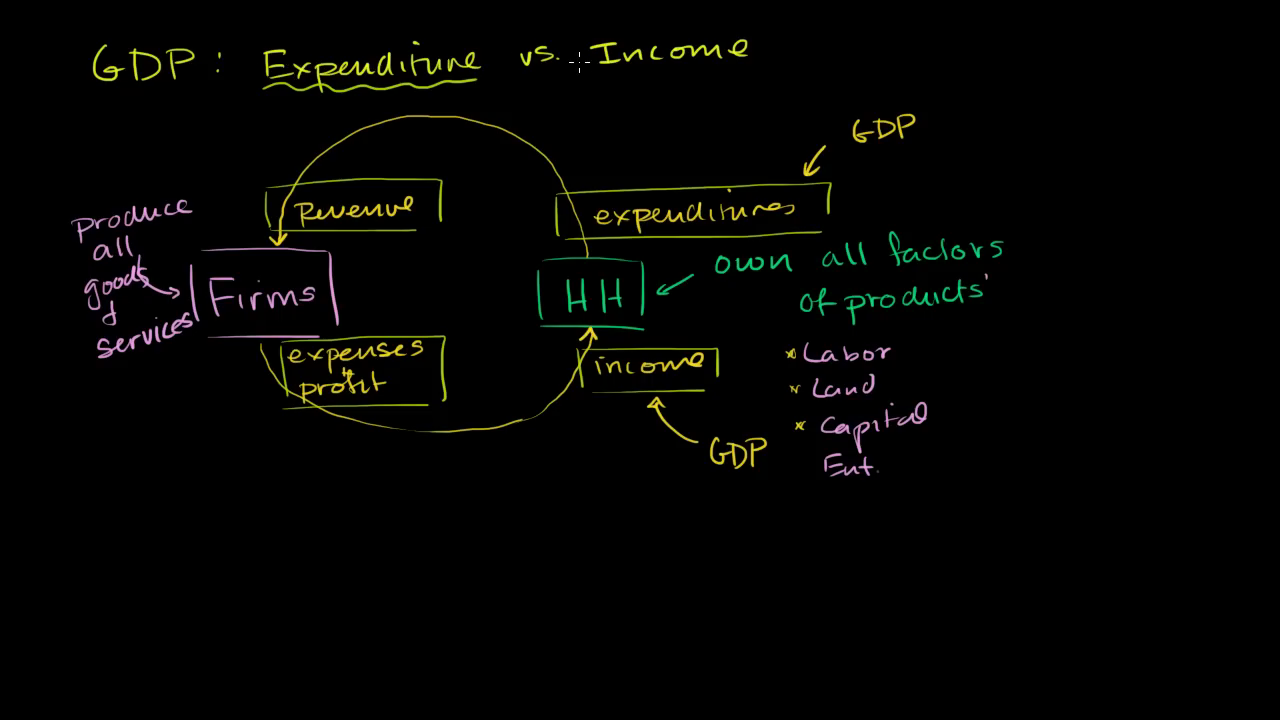 GDP: Expenditure vs. Income
GDP
Revenue
expenditures
produce
all
goods
&
services
Firms
HH
own all factors
of products'
expenses
&
profit
income
GDP
* Labor
* Land
* Capital
Ent.